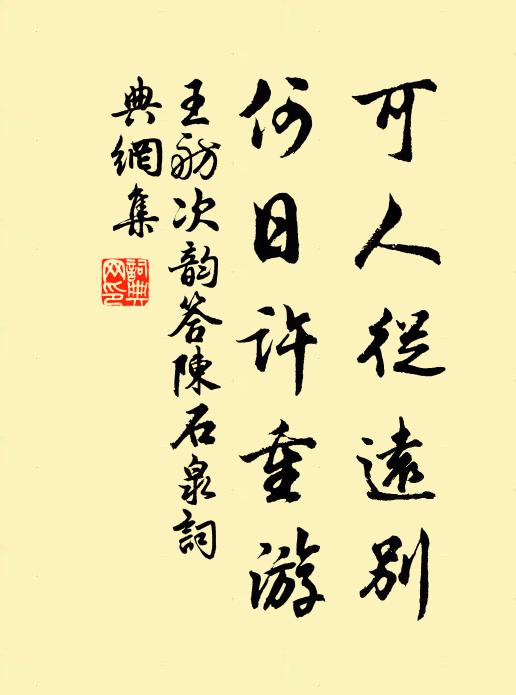 可人從遠別
何日許重游
王舫次韵答陳石泉詞
典網集
詞典
网印